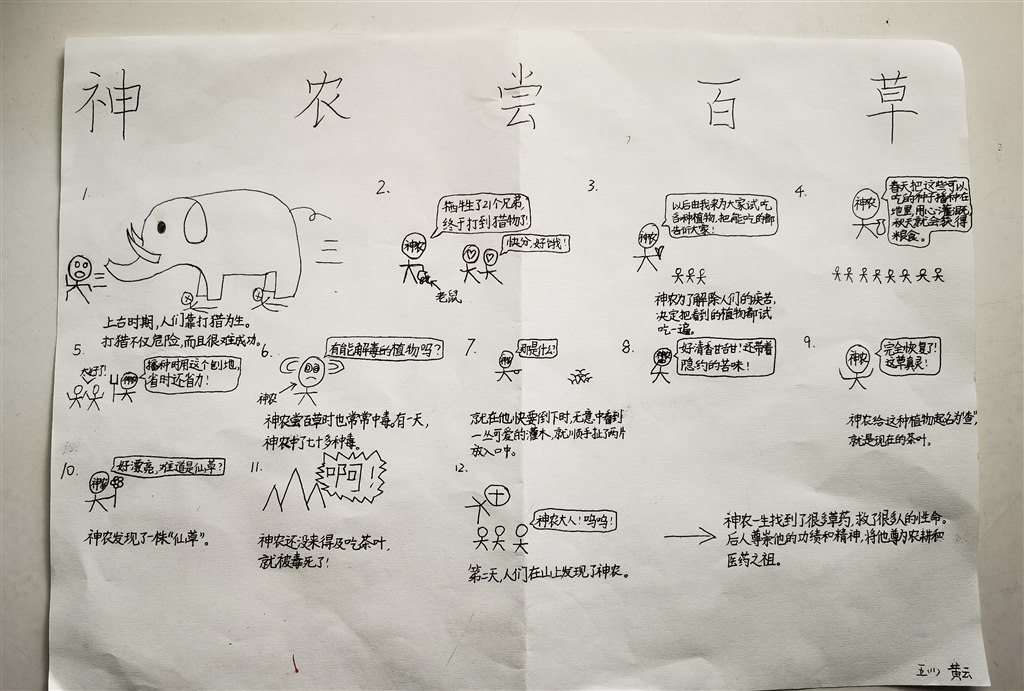 神农尝百草
1.
上古时期,人们靠打猎为生。
打猎不仅危险,而且很难成功。
2.
牺牲了21个兄弟,
终于打到猎物了!
神农
快分,好饿!
老鼠
3.
以后由我来为大家试吃
各种植物,把能吃的都
告诉大家!
神农
神农为了解除人们的疾苦,
决定把看到的植物都试
吃一遍。
4.
春天把这些可以
吃的种子播种在
地里,用心灌溉,
秋天就会获得
粮食。
神农
5.
太好了!
播种时用这个刨地,
省时还省力!
神农
6.
有能解毒的植物吗?
神农
神农尝百草时也常常中毒。有一天,
神农中了七十多种毒。
7.
那是什么?
神农
就在他快要倒下时,无意中看到
一丛可爱的灌木,就顺手扯了两片
放入口中。
8.
好清香甘甜!还带着
隐约的苦味!
神农
9.
完全恢复了!
这草真灵!
神农
神农给这种植物起名为“查”,
就是现在的茶叶。
10.
好漂亮,难道是仙草?
神农
神农发现了一株“仙草”。
11.
啊!
神农还没来得及吃茶叶,
就被毒死了!
12.
神农大人!呜呜!
第二天,人们在山上发现了神农。
神农一生找到了很多草药,救了很多人的性命。
后人尊崇他的功绩和精神,将他尊为农耕和
医药之祖。
黄云